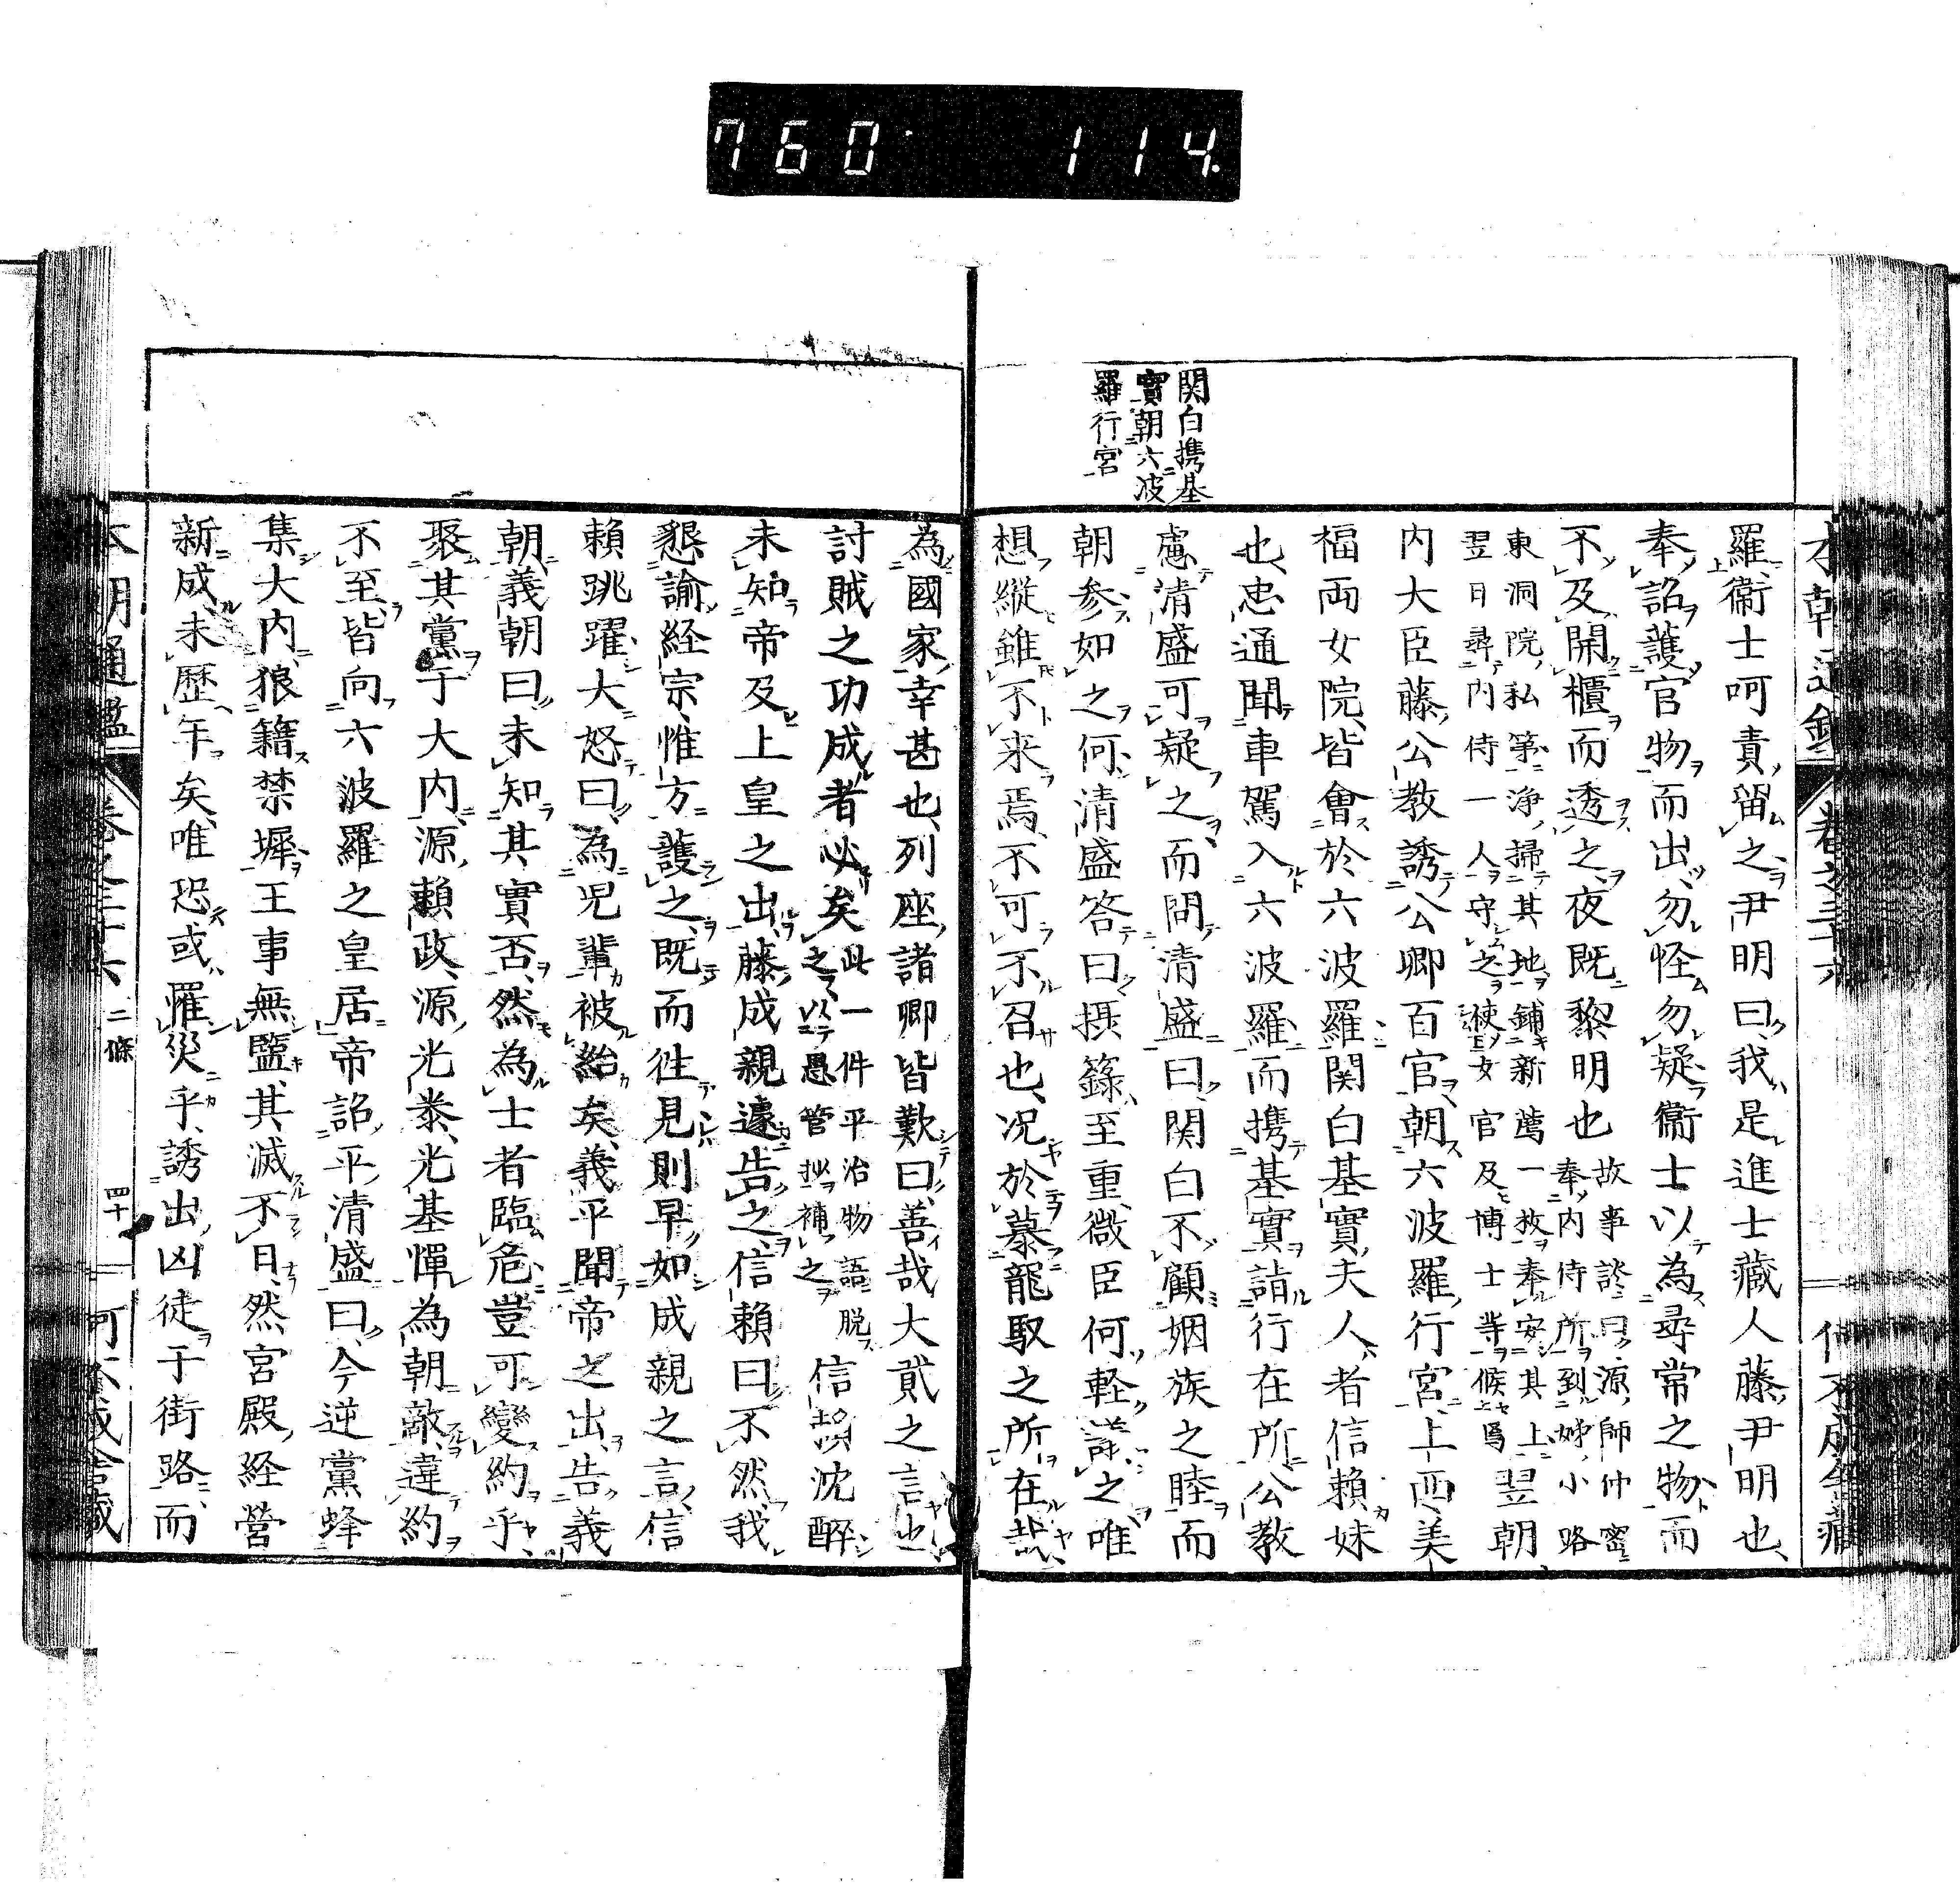 760 114
本朝通鑑 卷之二十六
関白携基
實朝六波
羅行宮
羅衞士呵責留之尹明曰我是進士藏人藤尹明也
奉詔護官物而出勿怪勿疑衞士以為尋常之物而
不及開櫃而透之夜既黎明也故事談曰源師仲密奉内侍所到姊小路
東洞院私第浄掃其地鋪新薦一枚奉安其上翌日尋内侍一人守之使女官及博士等候焉翌朝
内大臣藤公教誘公卿百官朝六波羅行宮上西美
福両女院皆會於六波羅関白基實夫人者信賴妹
也忠通聞車駕入六波羅而携基實詣行在所公教
慮清盛可疑之而問清盛曰関白不顧姻族之睦而
朝参如之何清盛答曰摂籙至重微臣何軽議之唯
想縱雖不来焉不可不召也况於慕龍馭之所在哉
為國家幸甚也列座諸卿皆歎曰善哉大貳之言也
討賊之功成者必矣此一件平治物語脱之以愚管抄補之信賴沈醉
未知帝及上皇之出藤成親遽告之信賴曰不然我
懇諭経宗惟方護之既而徃見則早如成親之言信
賴跳躍大怒曰為児輩被紿矣義平聞帝之出告義
朝義朝曰未知其實否然為士者臨危豈可變約乎
聚其黨于大内源賴政源光㤗光基憚為朝敵違約
不至皆向六波羅之皇居帝詔平清盛曰今逆黨蜂
集大内狼籍禁墀王事無盬其滅不日然宮殿経營
新成未歷年矣唯恐或罹災乎誘出凶徒于街路而
本朝通鑑 卷之二十六 二條 四十一